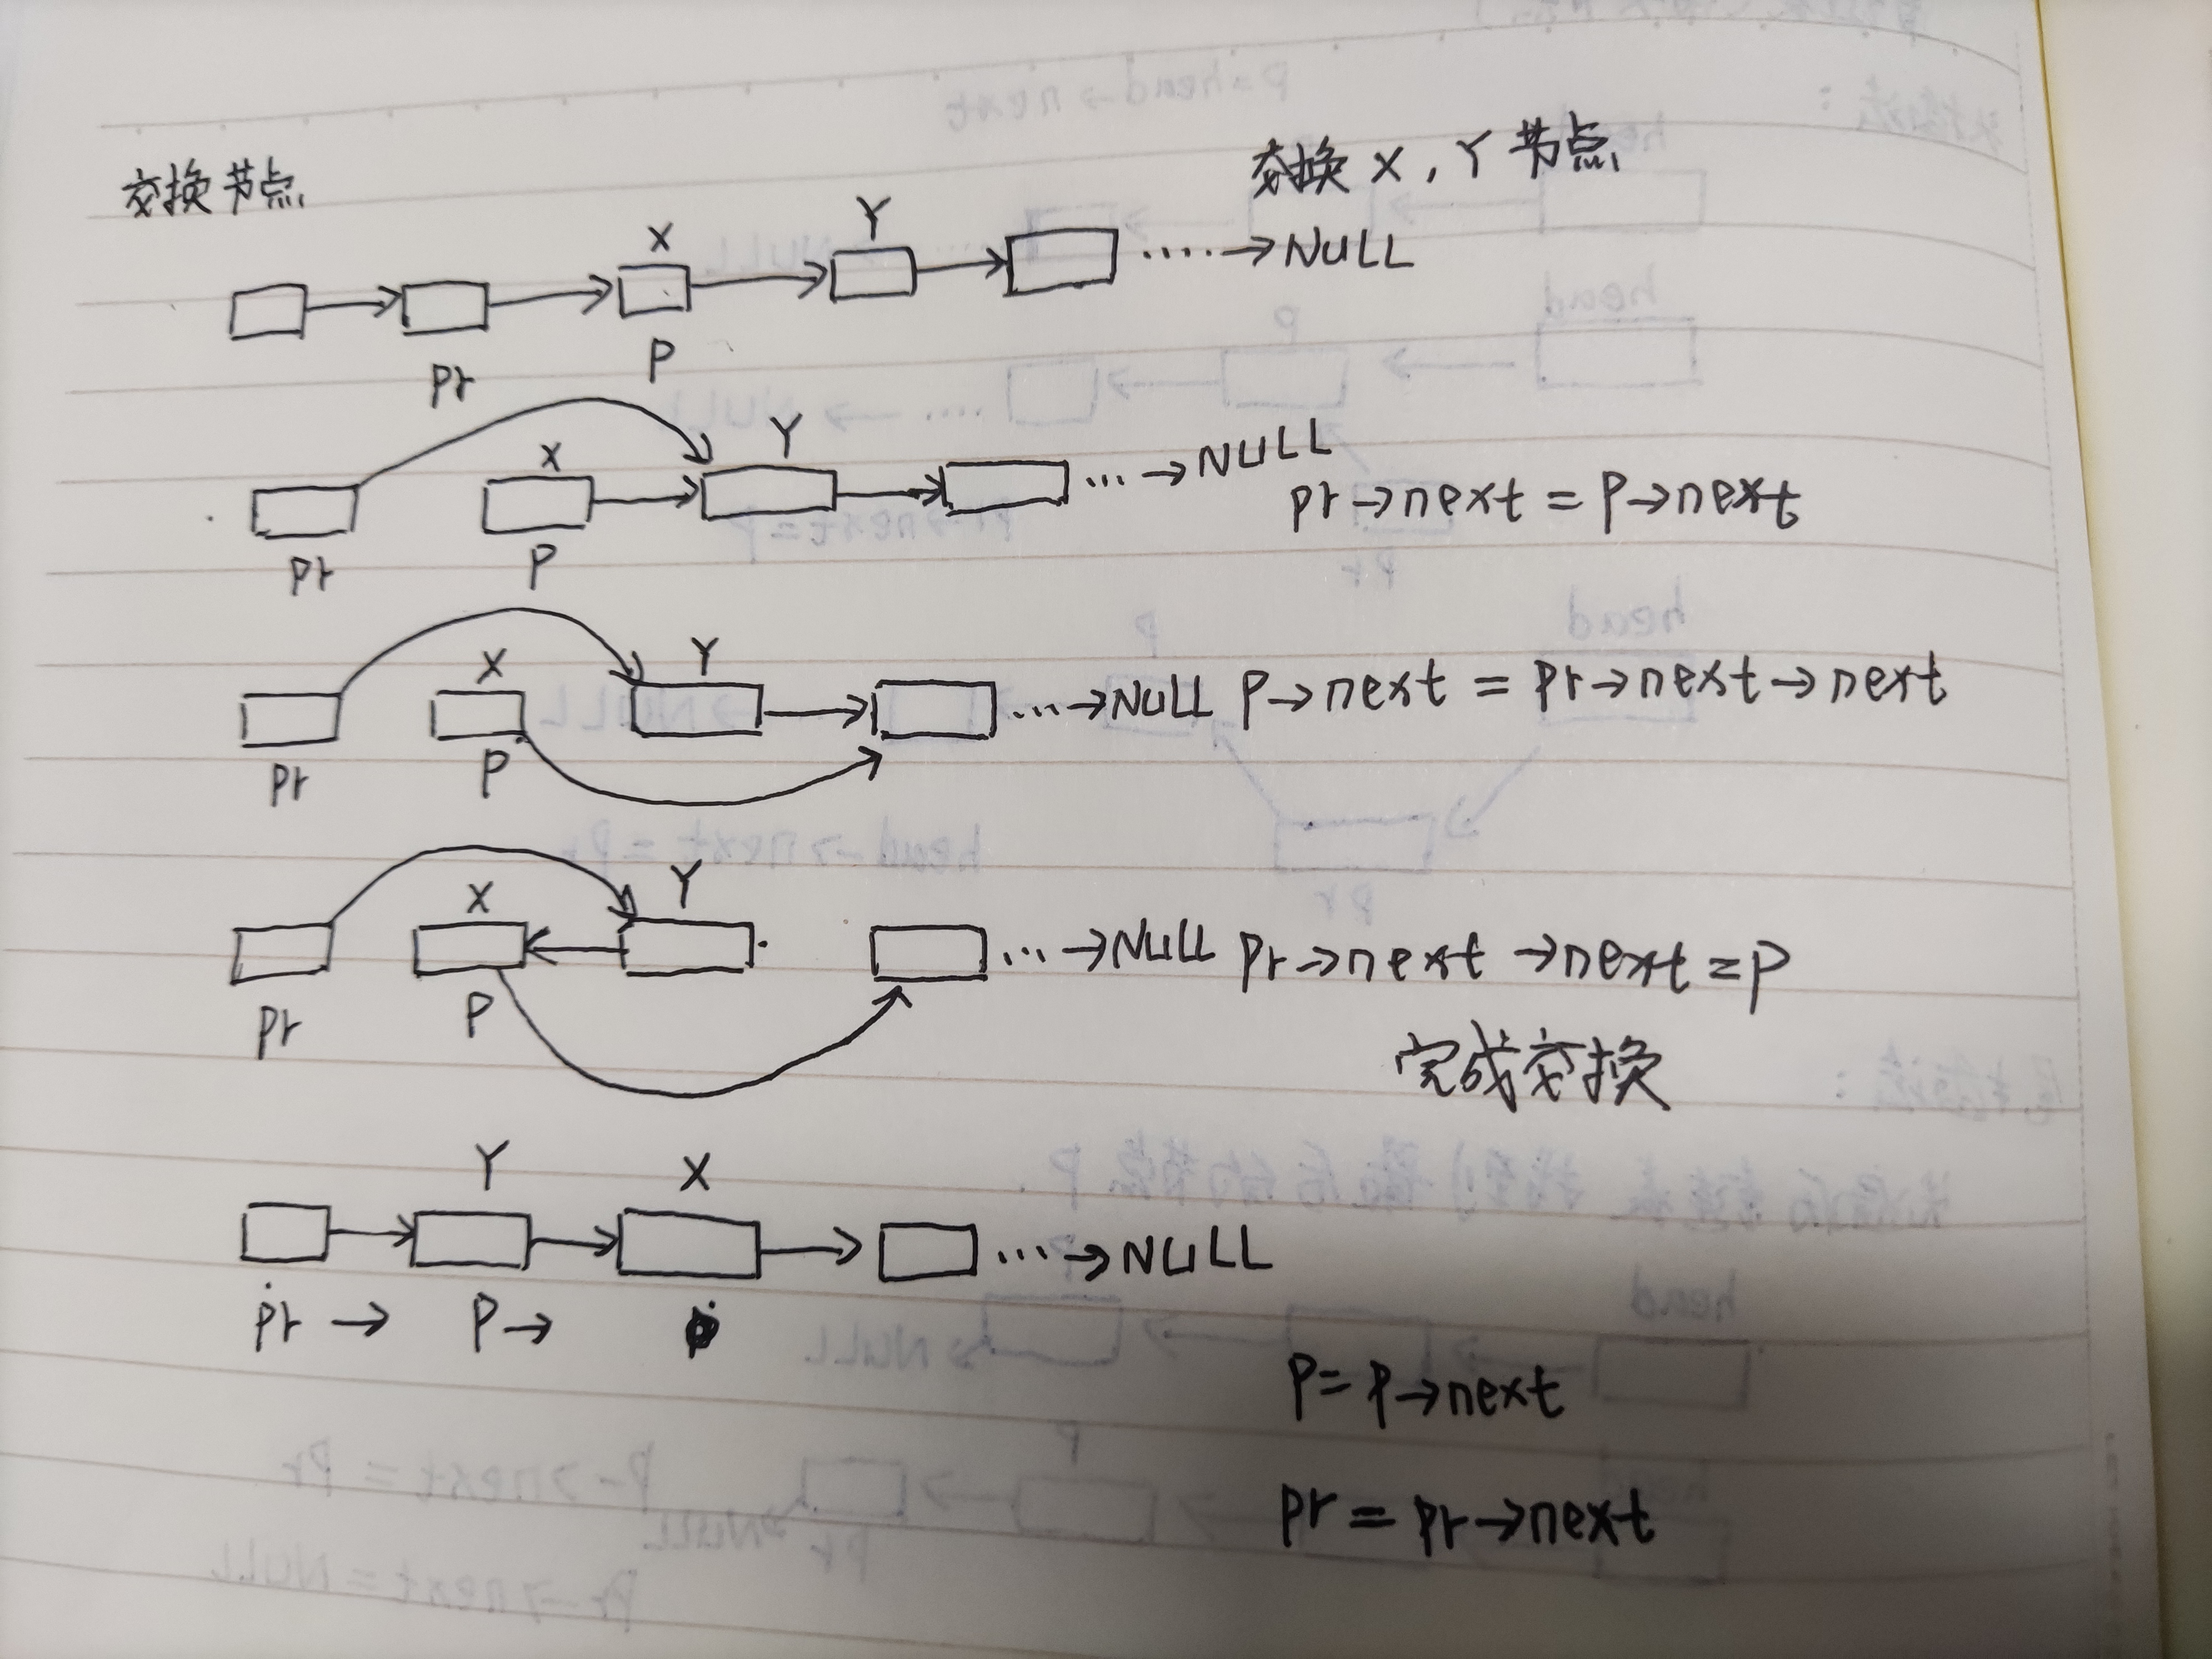 交换节点
交换 X, Y 节点
X Y
....→NULL
pr P
X Y
...→NULL
pr→next = P→next
pr P
X Y
...→NULL P→next = pr→next→next
pr P
X Y
...→NULL pr→next→next=p
pr P
完成交换
Y X
...→NULL
pr→ P→
P= P→next
pr = pr→next